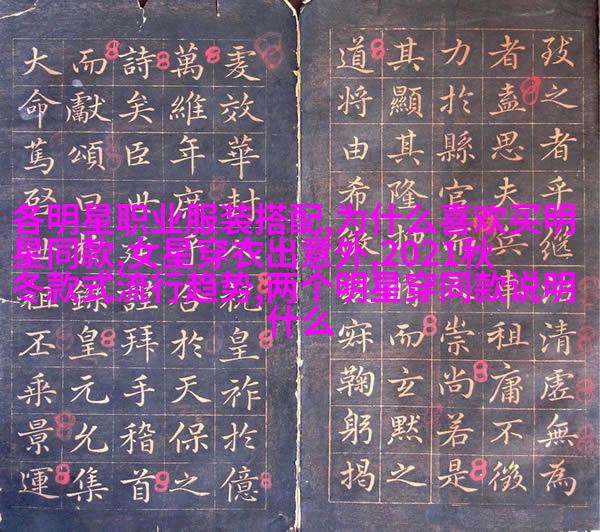 各明星职业服装搭配,为什么喜欢买明
星同款,女星穿衣出意外,2021秋
冬款式流行趋势,两个明星穿同款说明
什么
之者乎繼清虛無為
者盍思夫兵祖庸不徵
力於縣官崇尚若是
其顯其隆而玄默之
道將由希鞠躬揭
效華封祝皇祚於億
萬維年於天保之
詩矣臣世拜手稽首
而獻頌曰皇元允集
大命篤祖丕乘景運